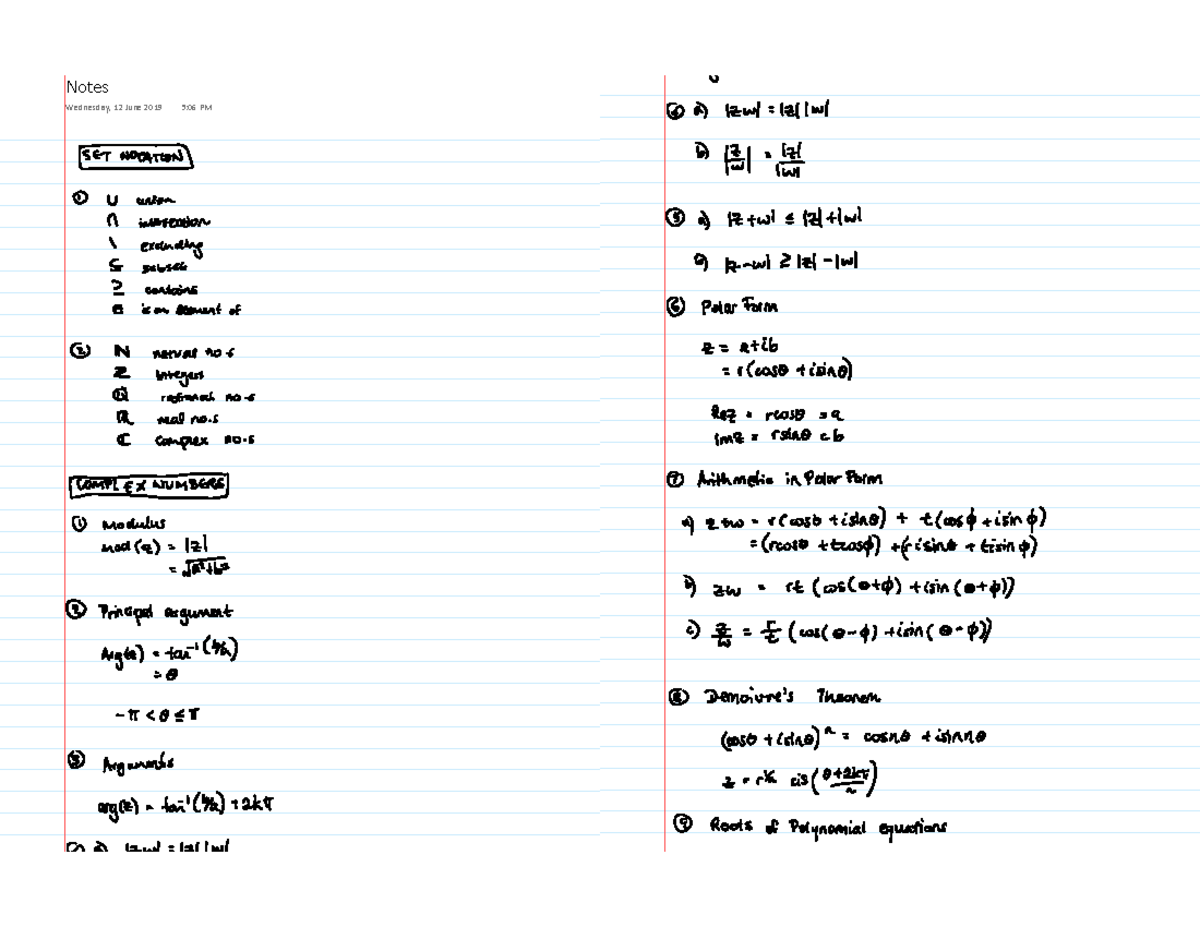 Notes
Wednesday, 12 June 2019 5:06 PM
SET NOTATION
① ∪ union
∩ intersection
\ excluding
⊆ subset
⊇ contains
∈ is an element of
② ℕ natural no.s
ℤ integers
ℚ rational no.s
ℝ real no.s
ℂ complex no.s
COMPLEX NUMBERS
① Modulus
mod(z) = |z|
= √a²+b²
② Principal argument
Arg(z) = tan⁻¹(b/a)
= θ
-π < θ ≤ π
③ Arguments
arg(z) = tan⁻¹(b/a) + 2kπ
a) |zw| = |z| |w|
④ a) |zw| = |z| |w|
b) |z/w| = |z|/|w|
⑤ a) |z+w| ≤ |z|+|w|
b) |z-w| ≥ |z|-|w|
⑥ Polar Form
z = a+ib
= r(cosθ + isinθ)
Rez = rcosθ = a
Imz = rsinθ = b
⑦ Arithmetic in Polar Form
a) z+w = r(cosθ + isinθ) + t(cosϕ + isinϕ)
= (rcosθ + tcosϕ) + (risinθ + tisinϕ)
b) zw = rt (cos(θ+ϕ) + isin(θ+ϕ))
c) z/w = r/t (cos(θ-ϕ) + isin(θ-ϕ))
⑧ Demoivre's Theorem
(cosθ + isinθ)ⁿ = cosnθ + isinnθ
z = r^1/n cis(θ+2kπ/n)
⑨ Roots of Polynomial equations